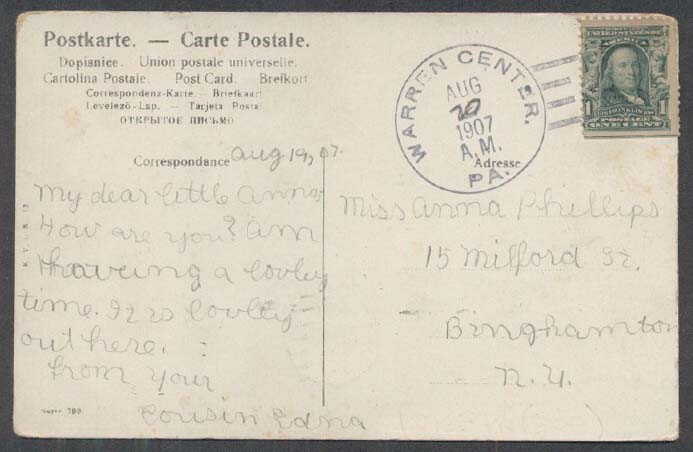 Postkarte. — Carte Postale.
Dopisnice. Union postale universelle.
Cartolina Postale. Post Card. Brefkort
Correspondenz-Karte. — Briefkaart
Levelező-Lap. — Tarjeta Postal.
ОТКРЫТОЕ ПИСЬМО
WARREN CENTER. PA.
AUG
20
1907
A.M.
POSTAGE
1 ONE CENT 1
Correspondance Aug 19, 07.
Adresse
My dear little Anna
How are you? Am
haveing a lovley
time. It is lovley
out here.
from your
Cousin Edna
Miss Anna Phillips
15 Milford St.
Binghamton
N. Y.
190